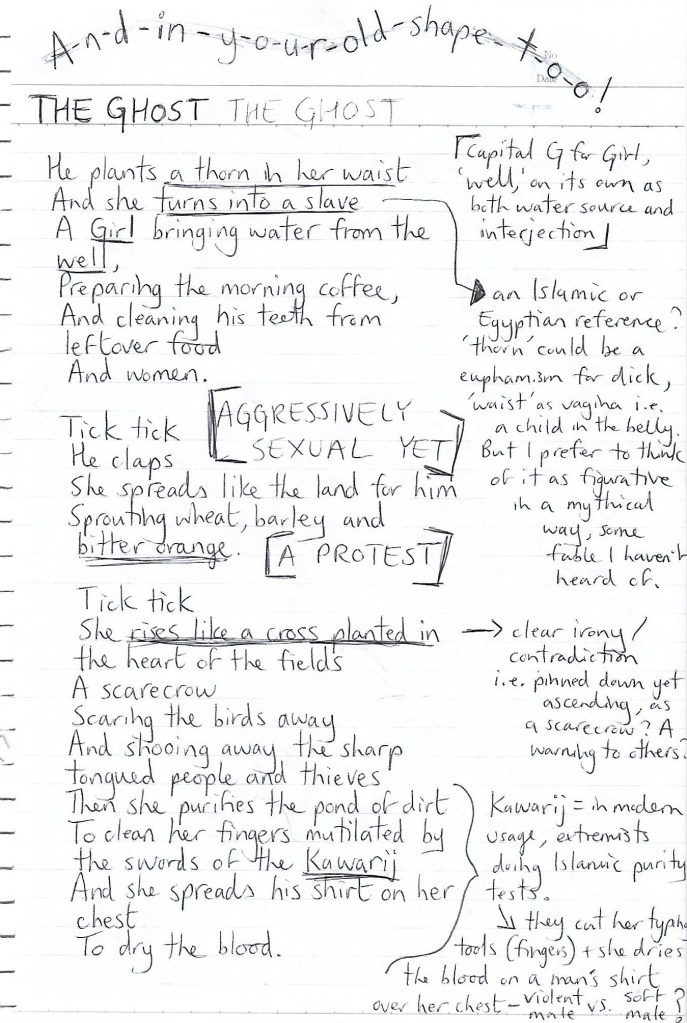 A-n-d-in-y-o-u-r-old-shape-t-o-o!
No
Date
THE GHOST THE GHOST
He plants a thorn in her waist
And she turns into a slave
A Girl bringing water from the
well,
Preparing the morning coffee,
And cleaning his teeth from
leftover food
And women.
Tick tick
He claps
She spreads like the land for him
Sprouting wheat, barley and
bitter orange.
[AGGRESSIVELY
SEXUAL YET]
[A PROTEST]
Tick tick
She rises like a cross planted in
the heart of the fields
A scarecrow
Scaring the birds away
And shooing away the sharp
tongued people and thieves
Then she purifies the pond of dirt
To clean her fingers mutilated by
the swords of the Kawarij
And she spreads his shirt on her
chest
To dry the blood.
[Capital G for Girl,
'well,' on its own as
both water source and
interjection]
an Islamic or
Egyptian reference?
'thorn' could be a
euphamism for dick,
'waist' as vagina i.e.
a child in the belly.
But I prefer to think
of it as figurative
in a mythical
way, some
fable I haven't
heard of.
→ clear irony/
contradiction
i.e. pinned down yet
ascending, as
a scarecrow? A
warning to others?
Kawarij = in modern
usage, extremists
doing Islamic purity
tests.
↘ they cut her typing
tools (fingers) + she dries
the blood on a man's shirt
over her chest - violent male vs. soft male?